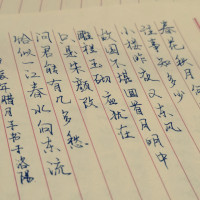 春花秋月何
往事知多少
小楼昨夜又东风
故国不堪回首月明中
雕栏玉砌应犹在
只是朱颜改
问君能有几多愁
恰似一江春水向东流
腊月书于洛阳